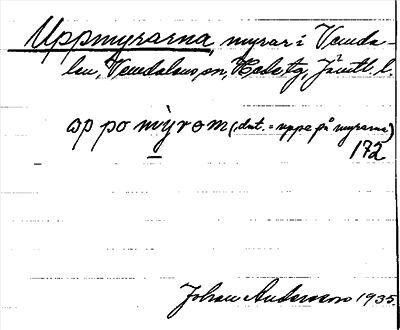 Uppmyrarna, myrar i Vemda-
len, Vemdalens sn, Hede tg, Jämtl. l.
op po mỳrom (dat. = uppe på myrarna)
172
Johan Anderson 1935.